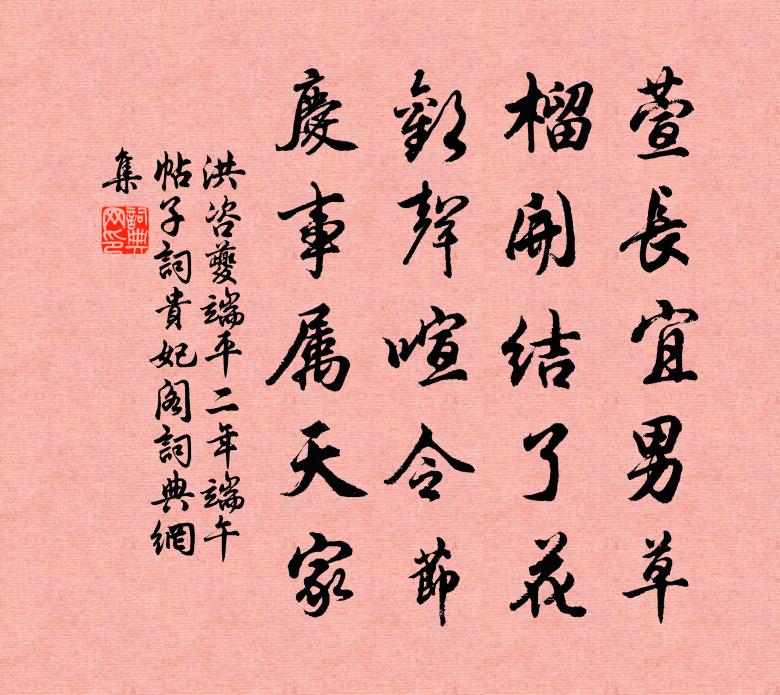 萱長宜男草
榴開結了花
歡聲喧令節
慶事属天家
洪咨夔端平二年端午
帖子詞貴妃阁詞典網
集
詞典網印